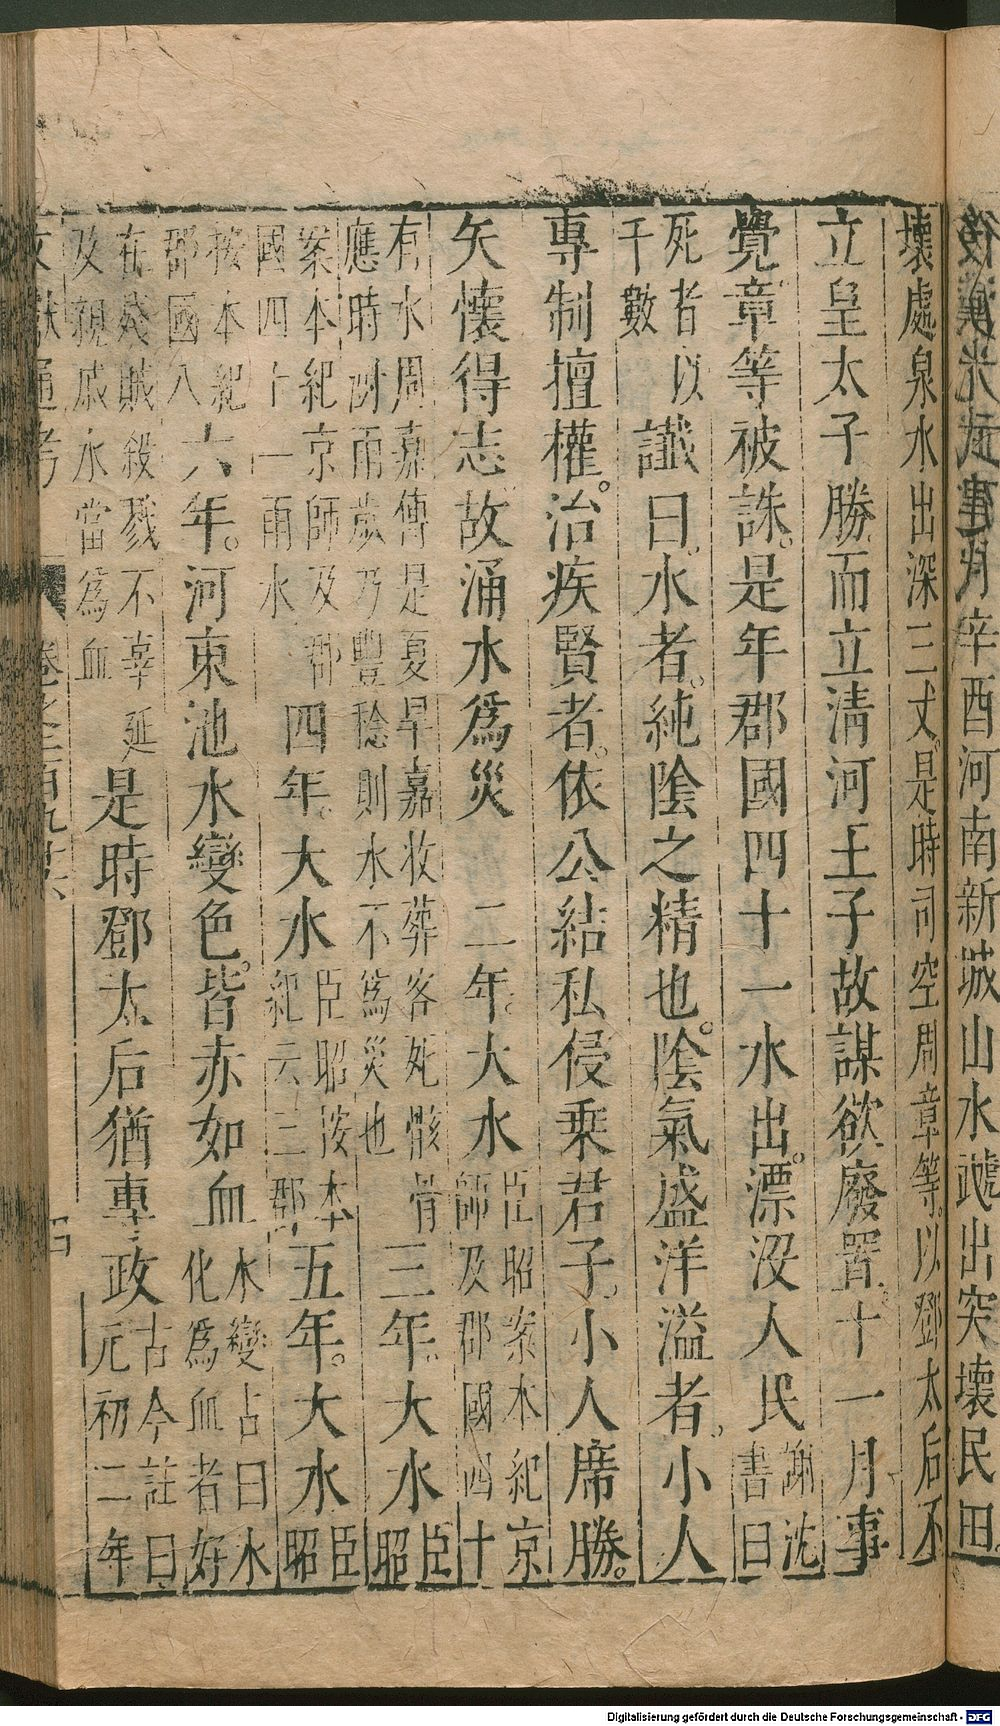 辛酉河南新城山水虣出突壞民田
壞處泉水出深三丈是時司空周章等以鄧太后不
立皇太子勝而立清河王子故謀欲廢置十一月事
覺章等被誅是年郡國四十一水出漂没人民謝沈書曰
死者以千數讖曰水者純陰之精也陰氣盛洋溢者小人
專制擅權治疾賢者依公結私侵乘君子小人席勝
矢懷得志故涌水爲災 二年大水臣昭案本紀京師及郡國四十
有水周嘉傳是夏旱嘉收葬客死骸骨應時澍雨歲乃豐稔則水不爲災也三年大水臣昭
案本紀京師及郡國四十一雨水四年大水臣昭按本紀云三郡五年大水臣昭
按本紀郡國八六年河東池水變色皆赤如血水變占曰水化爲血者好
在殘賊殺戮不辜延及親戚水當爲血是時鄧太后猶專政古今註曰元初二年
文獻通考 卷之二百九十六 四
Digitalisierung gefördert durch die Deutsche Forschungsgemeinschaft - DFG